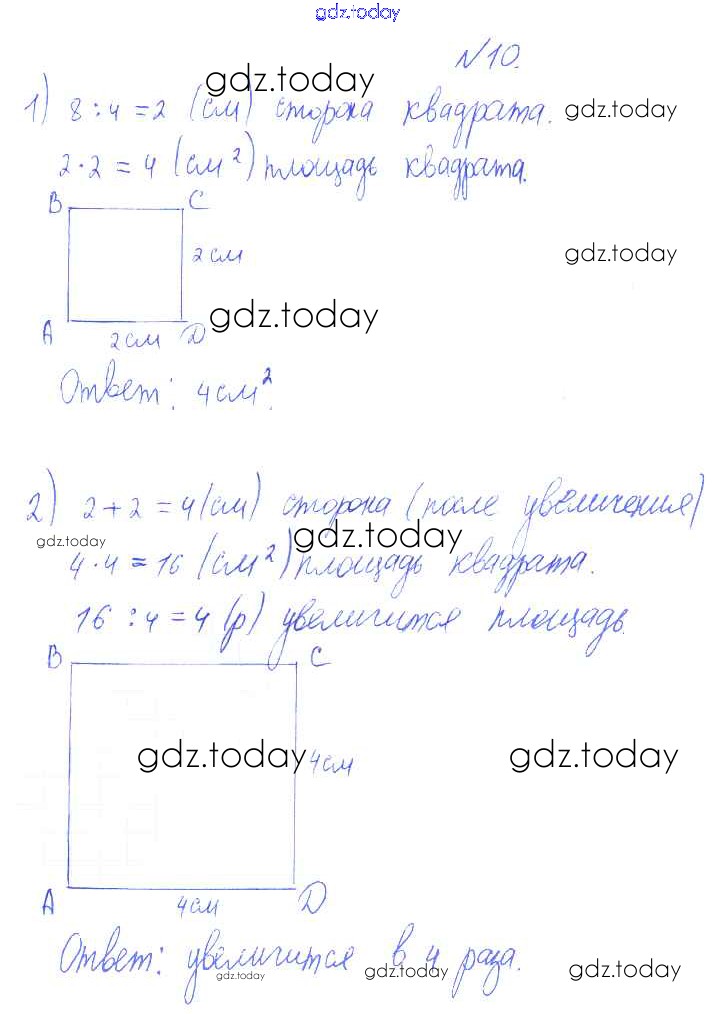 gdz.today
№10.
gdz.today
1) 8 : 4 = 2 (см) сторона квадрата.
gdz.today
2 · 2 = 4 (см²) площадь квадрата.
B C
2 см
gdz.today
gdz.today
A 2 см D
Ответ: 4 см².
2) 2 + 2 = 4 (см) сторона (после увеличения)
gdz.today
gdz.today
4 · 4 = 16 (см²) площадь квадрата.
16 : 4 = 4 (р) увеличится площадь.
B C
gdz.today
4 см
gdz.today
A 4 см D
Ответ: увеличится в 4 раза.
gdz.today
gdz.today
gdz.today